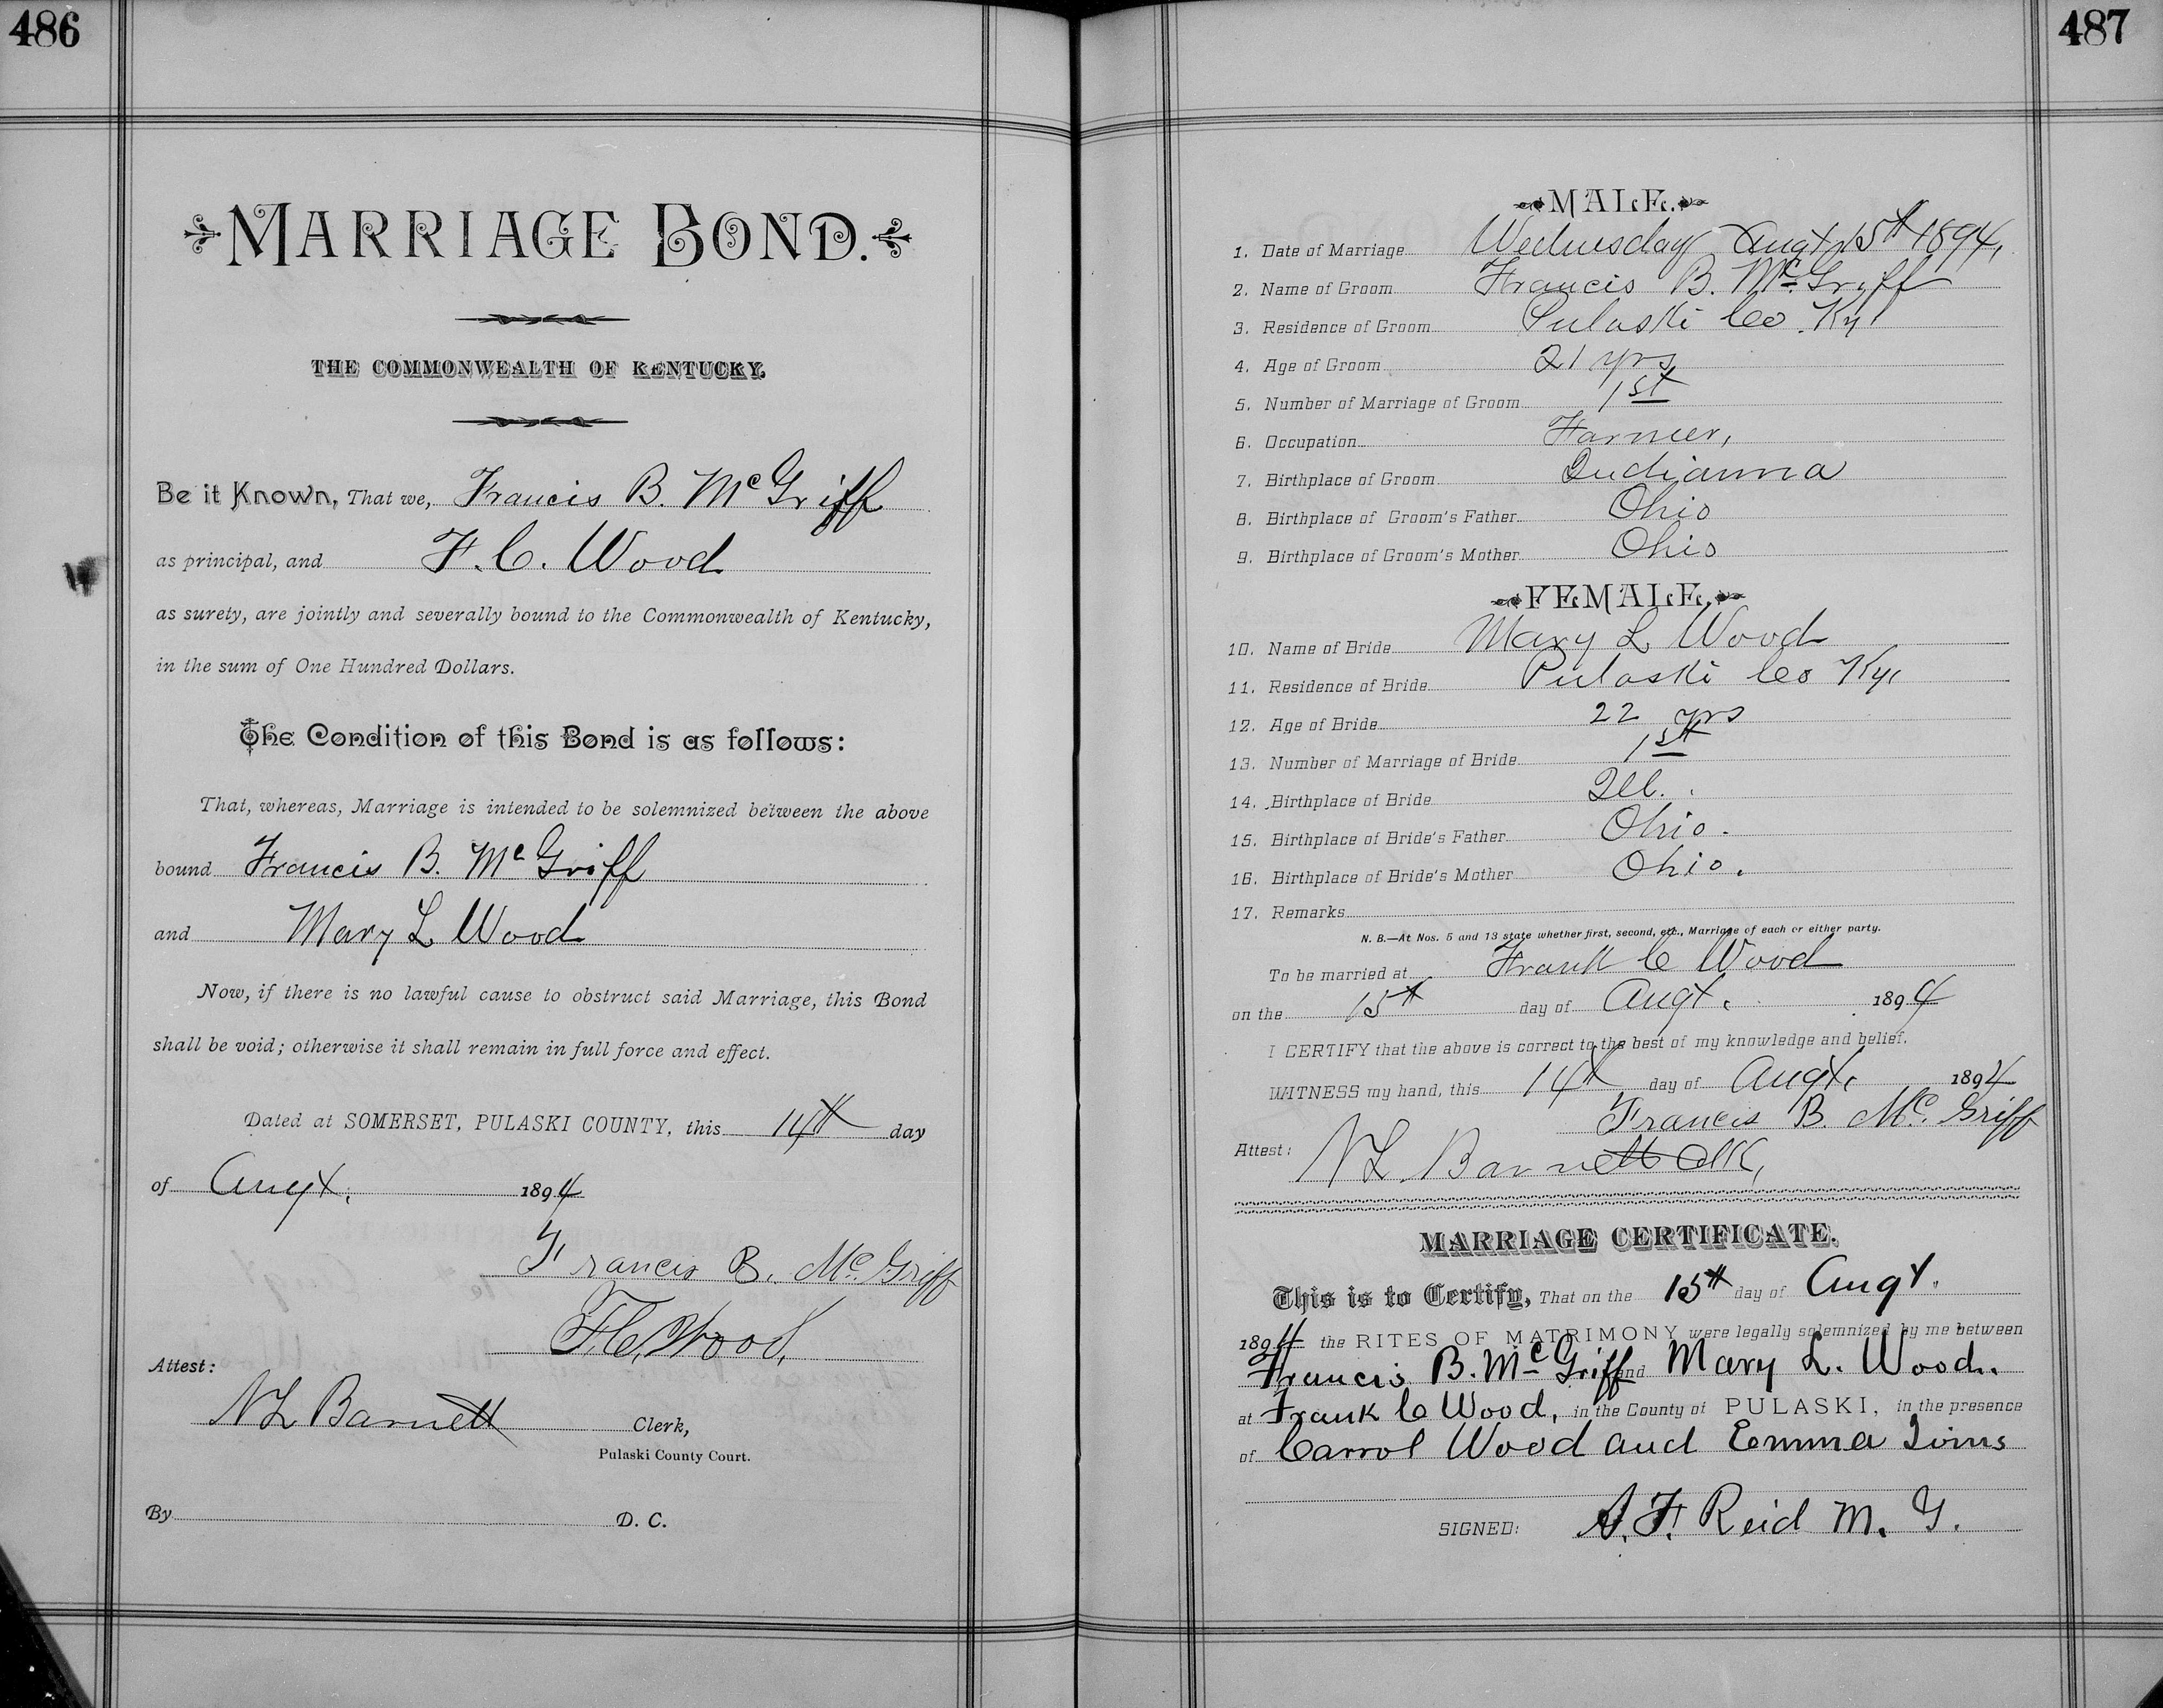 486
MARRIAGE BOND.
THE COMMONWEALTH OF KENTUCKY.
Be it Known, That we, Francis B. McGriff
as principal, and F. C. Wood
as surety, are jointly and severally bound to the Commonwealth of Kentucky,
in the sum of One Hundred Dollars.
The Condition of this Bond is as follows:
That, whereas, Marriage is intended to be solemnized between the above
bound Francis B. McGriff
and Mary L Wood
Now, if there is no lawful cause to obstruct said Marriage, this Bond
shall be void; otherwise it shall remain in full force and effect.
Dated at SOMERSET, PULASKI COUNTY, this 14th day
of Augt. 1894
Francis B. McGriff
F. C. Wood,
Attest:
N L Barnett Clerk,
Pulaski County Court.
By D. C.
487
MALE.
1. Date of Marriage Wednesday Augt 15th 1894,
2. Name of Groom Francis B. McGriff
3. Residence of Groom Pulaski Co Ky
4. Age of Groom 21 yrs
5. Number of Marriage of Groom 1st
6. Occupation Farmer,
7. Birthplace of Groom Indianna
8. Birthplace of Groom's Father Ohio
9. Birthplace of Groom's Mother Ohio
FEMALE.
10. Name of Bride Mary L Wood
11. Residence of Bride Pulaski Co Ky,
12. Age of Bride 22 yrs
13. Number of Marriage of Bride 1st
14. Birthplace of Bride Ill.
15. Birthplace of Bride's Father Ohio.
16. Birthplace of Bride's Mother Ohio.
17. Remarks
N. B.—At Nos. 5 and 13 state whether first, second, etc., Marriage of each or either party.
To be married at Frank C Wood
on the 15th day of Augt. 1894
I CERTIFY that the above is correct to the best of my knowledge and belief.
WITNESS my hand, this 14th day of Augt. 1894
Francis B. Mc. Griff
Attest: N L Barnett Clk,
MARRIAGE CERTIFICATE.
This is to Certify, That on the 15th day of Augt.
1894 the RITES OF MATRIMONY were legally solemnized by me between
Francis B. McGriff and Mary L. Wood.
at Frank C Wood, in the County of PULASKI, in the presence
of Carrol Wood and Emma Sims
SIGNED: A. F. Reid M. G.